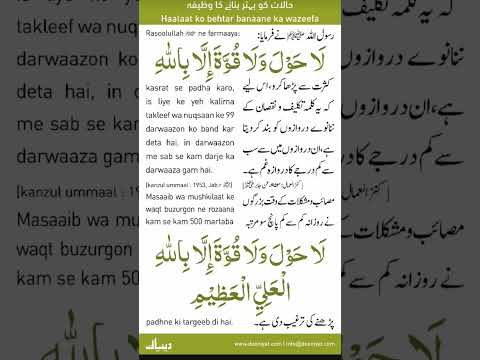 حالات کو بہتر بنانے کا وظیفہ
Haalaat ko behtar banaane ka wazeefa
Rasoolullah ﷺ ne farmaaya:
رسول اللہ ﷺ نے فرمایا:
لَا حَوْلَ وَلَا قُوَّةَ إِلَّا بِاللّٰهِ
kasrat se padha karo,
is liye ke yeh kalima
takleef wa nuqsaan ke 99
darwaazon ko band kar
deta hai, in darwaazon
me sab se kam darje ka
darwaaza gam hai.
[kanzul ummaal : 1953, Jabir
کثرت سے پڑھا کرو، اس لیے
کہ یہ کلمہ تکلیف و نقصان کے
ننانوے دروازوں کو بند کر دیتا
ہے، ان دروازوں میں سے سب
سے کم درجے کا دروازہ غم ہے۔
Masaaib wa mushkilaat ke
waqt buzurgon ne rozaana
kam se kam 500 martaba
مصائب و مشکلات کے وقت بزرگوں
نے روزانہ کم سے کم پانچ سو مرتبہ
لَا حَوْلَ وَلَا قُوَّةَ إِلَّا بِاللّٰهِ
الْعَلِيِّ الْعَظِيْمِ
padhne ki targeeb di hai.
پڑھنے کی ترغیب دی ہے۔
دینیات
www.deeniyat.com | info@deeniyat.com